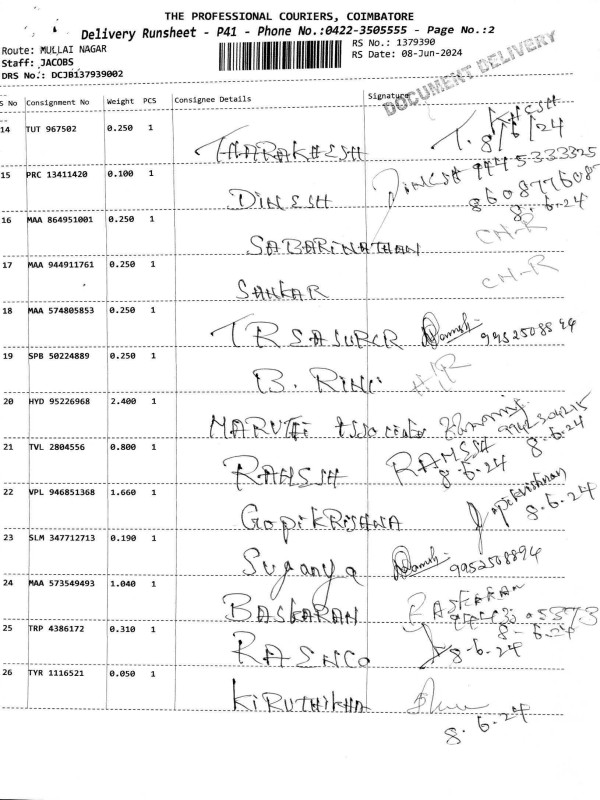 THE PROFESSIONAL COURIERS, COIMBATORE
Delivery Runsheet - P41 - Phone No.:0422-3505555 - Page No.:2
Route: MULLAI NAGAR
RS No.: 1379390
Staff: JACOBS
RS Date: 08-Jun-2024
DRS No.: DCJB137939002
DOCUMENT DELIVERY
S No Consignment No Weight PCS Consignee Details Signature
14 TUT 967502 0.250 1 THARAKESH 8/6/24
15 PRC 13411420 0.100 1 DINESH DINESH 9445333325
8608776087
8-6-24
16 MAA 864951001 0.250 1 SABARINATHAN CH-R
17 MAA 944911761 0.250 1 SANKAR CH-R
18 MAA 574805853 0.250 1 9952508894
19 SPB 50224889 0.250 1 B. RINI H/R
20 HYD 95226968 2.400 1 MARUTHI
8-6-24
21 TVL 2804556 0.800 1 RAMESH RAMESH
8-6-24
22 VPL 946851368 1.660 1 GOPIKRISHNA Gopikrishnan
8-6-24
23 SLM 347712713 0.190 1 Suganya 9952508894
24 MAA 573549493 1.040 1 BASKARAN BASKARAN
8-6-24
25 TRP 4386172 0.310 1 RASNCO 8-6-24
26 TYR 1116521 0.050 1 KIRUTHIKHA
8.6.24